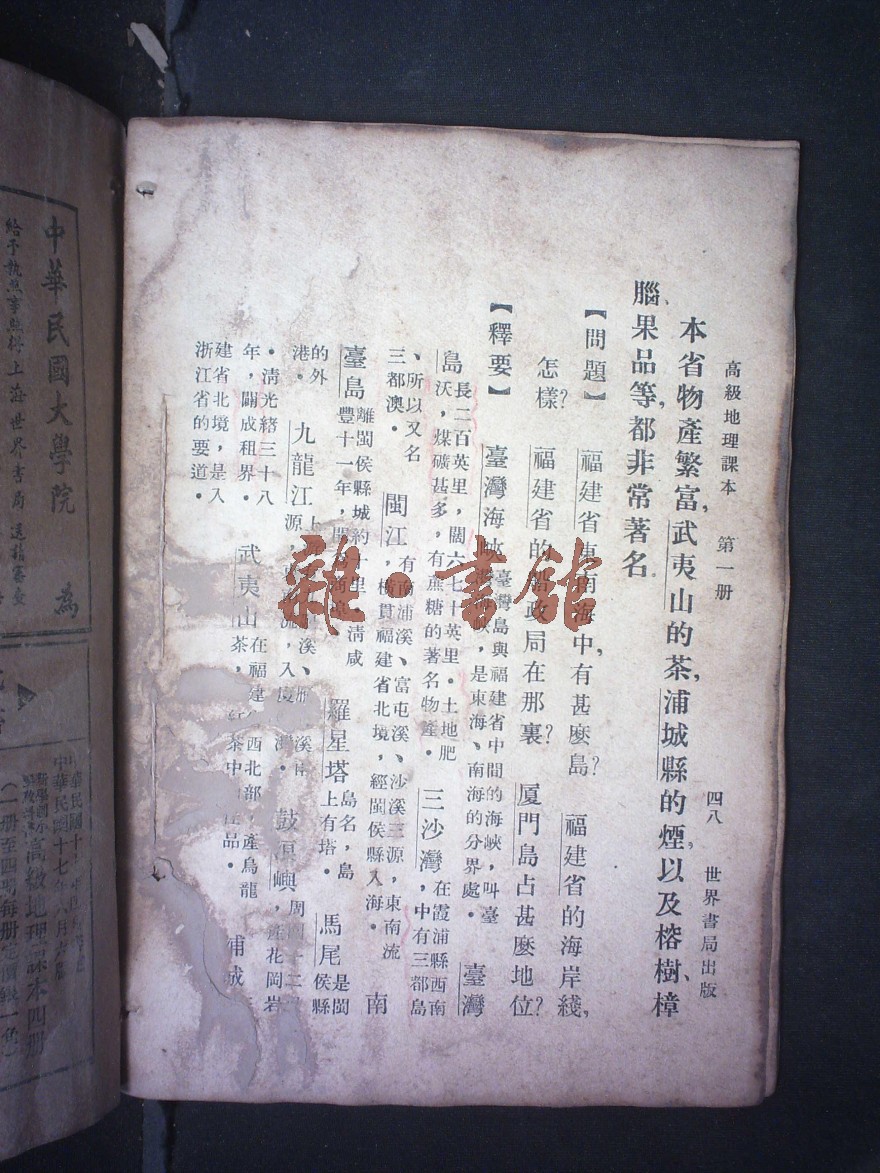 高級地理課本 第一册 四八 世界書局出版
本省物產繁富,武夷山的茶,浦城縣的煙,以及榕樹、樟
腦、果品等,都非常著名。
【問題】 福建省東南海中,有甚麼島? 福建省的海岸綫,
怎樣? 福建省的船政局在那裏? 厦門島占甚麼地位?
【釋要】 臺灣海峽 臺灣島與福建省中間的海峽,叫臺
灣海峽,是東海、南海的分界處。 臺灣
島 長二百英里,闊六七十英里。土地肥
沃,煤礦甚多,有蔗糖的著名物產。 三沙灣 在霞浦縣西南
,中有三都島
、所以又名
三都澳。 閩江 有南浦溪、富屯溪、沙溪三源,東南流
,橫貫福建省北境,經閩侯縣入海。 南
臺島 離閩侯縣城約十里。清咸
豐十一年,開為商阜。 羅星塔 島名,島
上有塔。 馬尾 是閩
侯縣
的外
港。 九龍江 上 溪、 溪
源, 流,入 鼓浪嶼 周
, 花岡岩
。清光緒三十八
年,闢成租界。 武夷山 在福建 西北部,產烏龍
茶, 茶中 品。 浦城
建省北境,是入
浙江省的要道。
雜·書館
中華民國大學院 為
給予執照事照得上海世界書局
中華民國十七年八月
高級地理課本四册
(一册至四册每册定價銀一角)